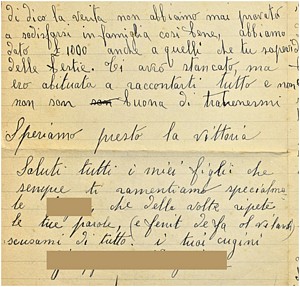 di dico la verita non abbiamo mai provato
a sodisfarsi in famiglia cosi bene, abbiamo
dato £ 1000 anche a quelli che tu sapevi
delle ferite. Ti avrò stancato, ma
ero abituata a raccontarti tutto e non
non son buona di trattenermi
Speriamo presto la vittoria
Saluti tutti i miei figli che
sempre ti ramentiamo specialmente
le che delle volte ripete
le tue parole, (e fenit
scusami di tutto. i tuoi cugini